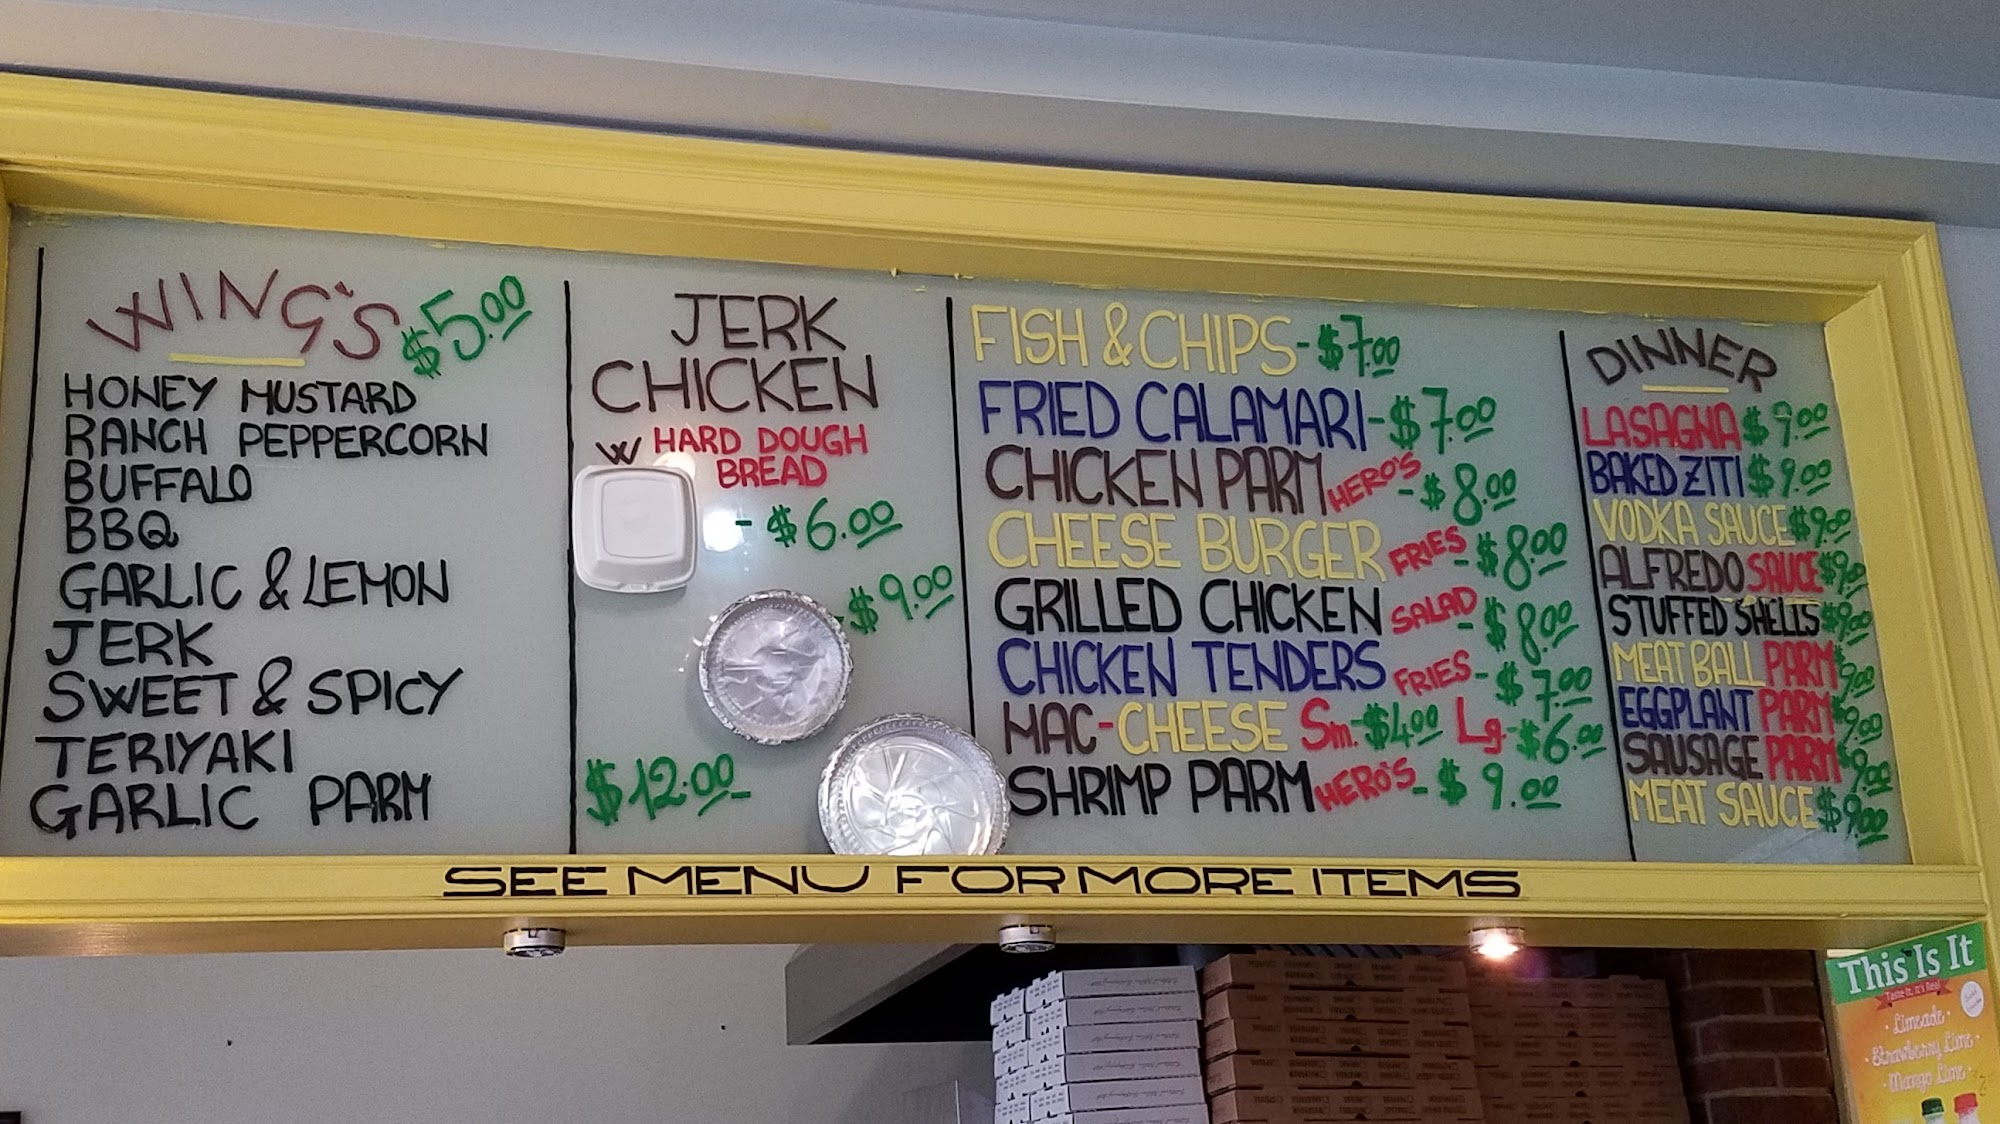 WING'S $5.00
HONEY MUSTARD
RANCH PEPPERCORN
BUFFALO
BBQ
GARLIC & LEMON
JERK
SWEET & SPICY
TERIYAKI
GARLIC PARM
JERK
CHICKEN
W/ HARD DOUGH
BREAD
- $6.00
- $9.00
$12.00-
FISH & CHIPS - $7.00
FRIED CALAMARI - $7.00
CHICKEN PARM HERO'S - $8.00
CHEESE BURGER FRIES - $8.00
GRILLED CHICKEN SALAD - $8.00
CHICKEN TENDERS FRIES - $7.00
MAC-CHEESE Sm. - $4.00 Lg - $6.00
SHRIMP PARM HERO'S - $9.00
DINNER
LASAGNA $9.00
BAKED ZITI $9.00
VODKA SAUCE $9.00
ALFREDO SAUCE $9.00
STUFFED SHELLS $9.00
MEAT BALL PARM $9.00
EGGPLANT PARM $9.00
SAUSAGE PARM $9.00
MEAT SAUCE $9.00
SEE MENU FOR MORE ITEMS
This Is It
Taste It, It's Real
• Limeade •
• Strawberry Lime •
• Mango Lime •